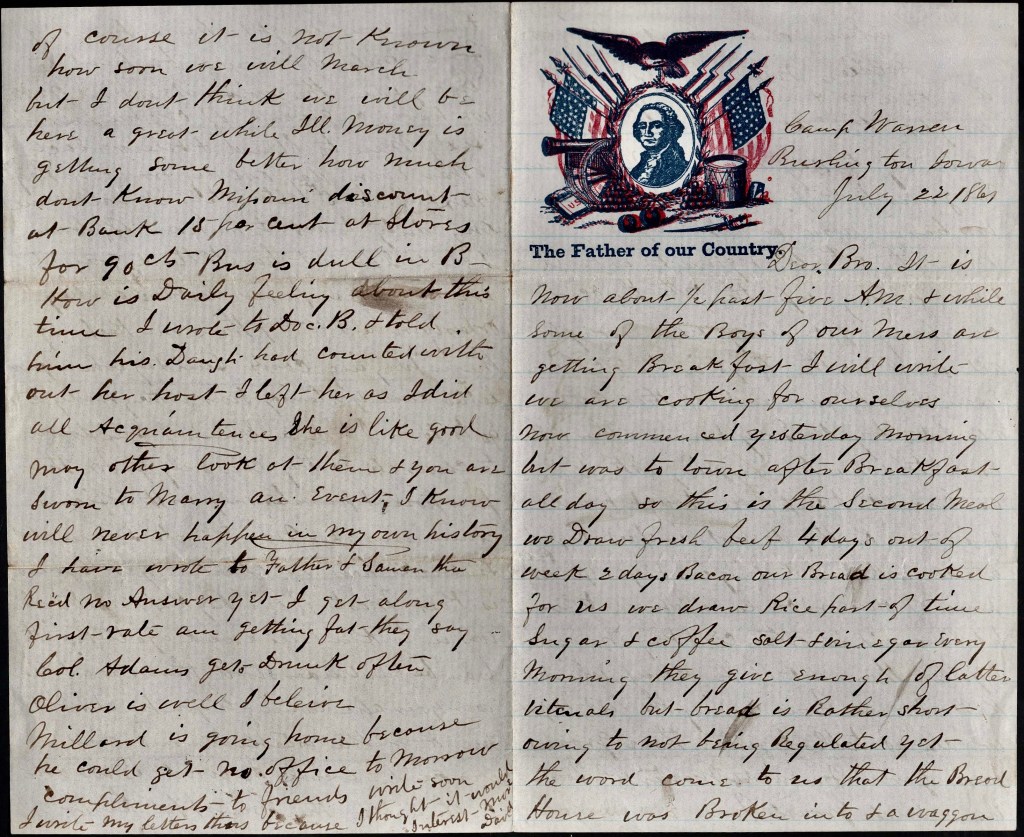 The Father of our Country.
Camp Warren
Burlington Iowa
July 22 1861
Dear Bro. It is
now about ½ past five AM. & while
some of the Boys of our Mess are
getting Breakfast I will write
we are cooking for ourselves
now commenced yesterday Morning
but was to town after Breakfast
all day so this is the Second Meal
we Draw fresh beef 4 days out of
week 2 days Bacon our Bread is cooked
for us we draw Rice part of time
Sugar & coffee salt & vinegar Every
Morning they give enough of latter
vituals but bread is Rather short
owing to not being Regulated yet
the word come to us that the Bread
House was Broken into & a waggon
of course it is not Known
how soon we will March
but I dont think we will be
here a great while Ill. Money is
getting some better how much
dont Know Missouri discount
at Bank 15 per cent at Stores
for 90 cts Bus is dull in B-
How is Daily feeling about this
time I wrote to Doc. B. & told
him his Daugh had counted with
out her host I left her as I did
all Acquaintences She is like good
may other look at them & you are
sworn to Marry an Event, I Know
will never happen in my own history
I have wrote to Father &
Rec'd no Answer yet I get along
first-rate am getting fat they say
Col. Adams gets Drunk often
Oliver is well I beleive
Millard is going home because
he could get no office to Morrow
compliments to friends write soon
I write my letters thus because I thought it would
Interest you
Dave